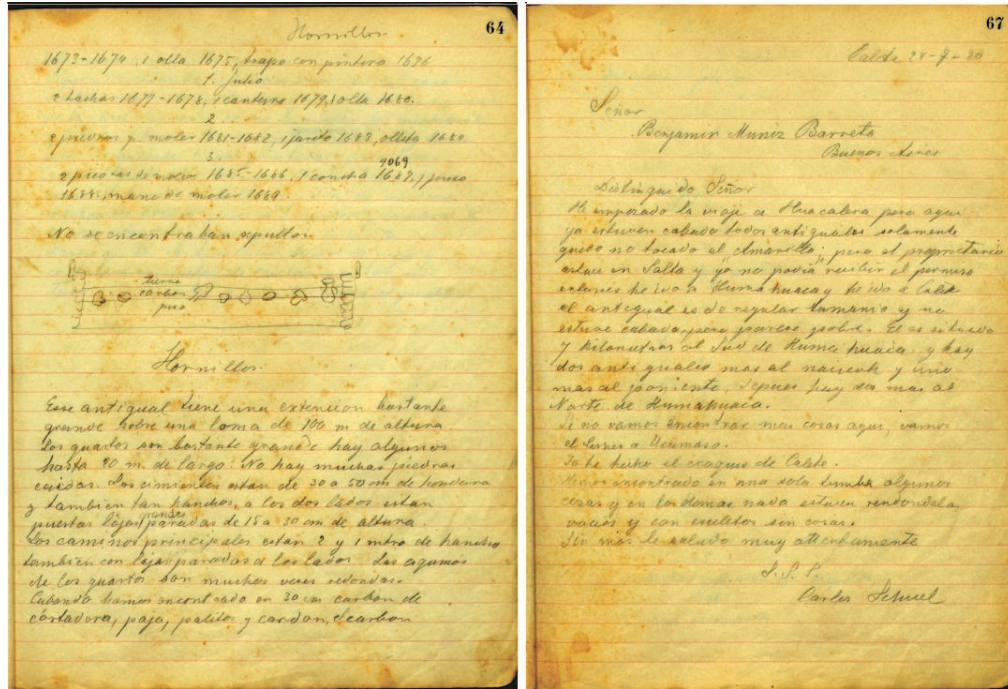 64
Hornillos
1673-1674, 1 olla 1675, trapo con pintura 1676
1. Julio
2 hachas 1677-1678, 1 canterro 1679, 1 olla 1680.
2
2 piedras p. moler 1681-1682, 1 jarrito 1683, ollita 1684
3.
4069
2 piedras de moler 1685-1686, 1 concha 1687, 1
1688, mano de moler 1689.
No se encontraban sepultos.
tierra
carbon
piso
Hornillos.
Ese antigual tiene una extencion bastante
grande sobre una loma de 100 m de altura.
Los quartos son bastante grande hay algunos
hasta 20 m. de largo. No hay muchas piedras
caidas. Los cimientos estan de 30 a 50 cm de hondura
y tambien tan hanchos, a los dos lados estan
grandes
puestas lajas paradas de 15 a 30 cm de altura.
Los caminos principales estan 2 y 1 mtro de hancho
tambien con lajas paradas a los lados. Las
de los quartos son muchas veces redondas.
Cabando hamos encontrado en 30 cm carbon de
cortadera, paja, palitos y cardon, S carbon
67
Calete 28-7-30
Señor
Benjamin Muniz Barreto
Buenos Aires
Distinguido Señor
He empezado la viaje a Huacalera pero aqui
ya estuven cabado todos antiguales solamente
quedo no tocado el "Amarillo", pero el proprietario
estuve en Salta y yo no podia recibir el permiso
entonces he ido a Humahuaca y he ido a Calete
el antigual es de regular tamanio y no
estuve cabado, pero parece pobre. El es situado
7 kilometros al Sud de Humahuaca y hay
dos antiguales mas al naciente y uno
mas al poniente. Depues hay dos mas al
Norte de Humahuaca.
Si no vamos encontrar mas cosas aqui, vamos
el lunes a Ucumaso.
Ja he hecho el croquis de Calete.
Hemos encontrado en una sola tumba algunos
cosas y en los demas nada estuven
vacios y con esceletos sin cosas.
Sin mas le saludo muy attentamente
S. S. S.
Carlos Schuel